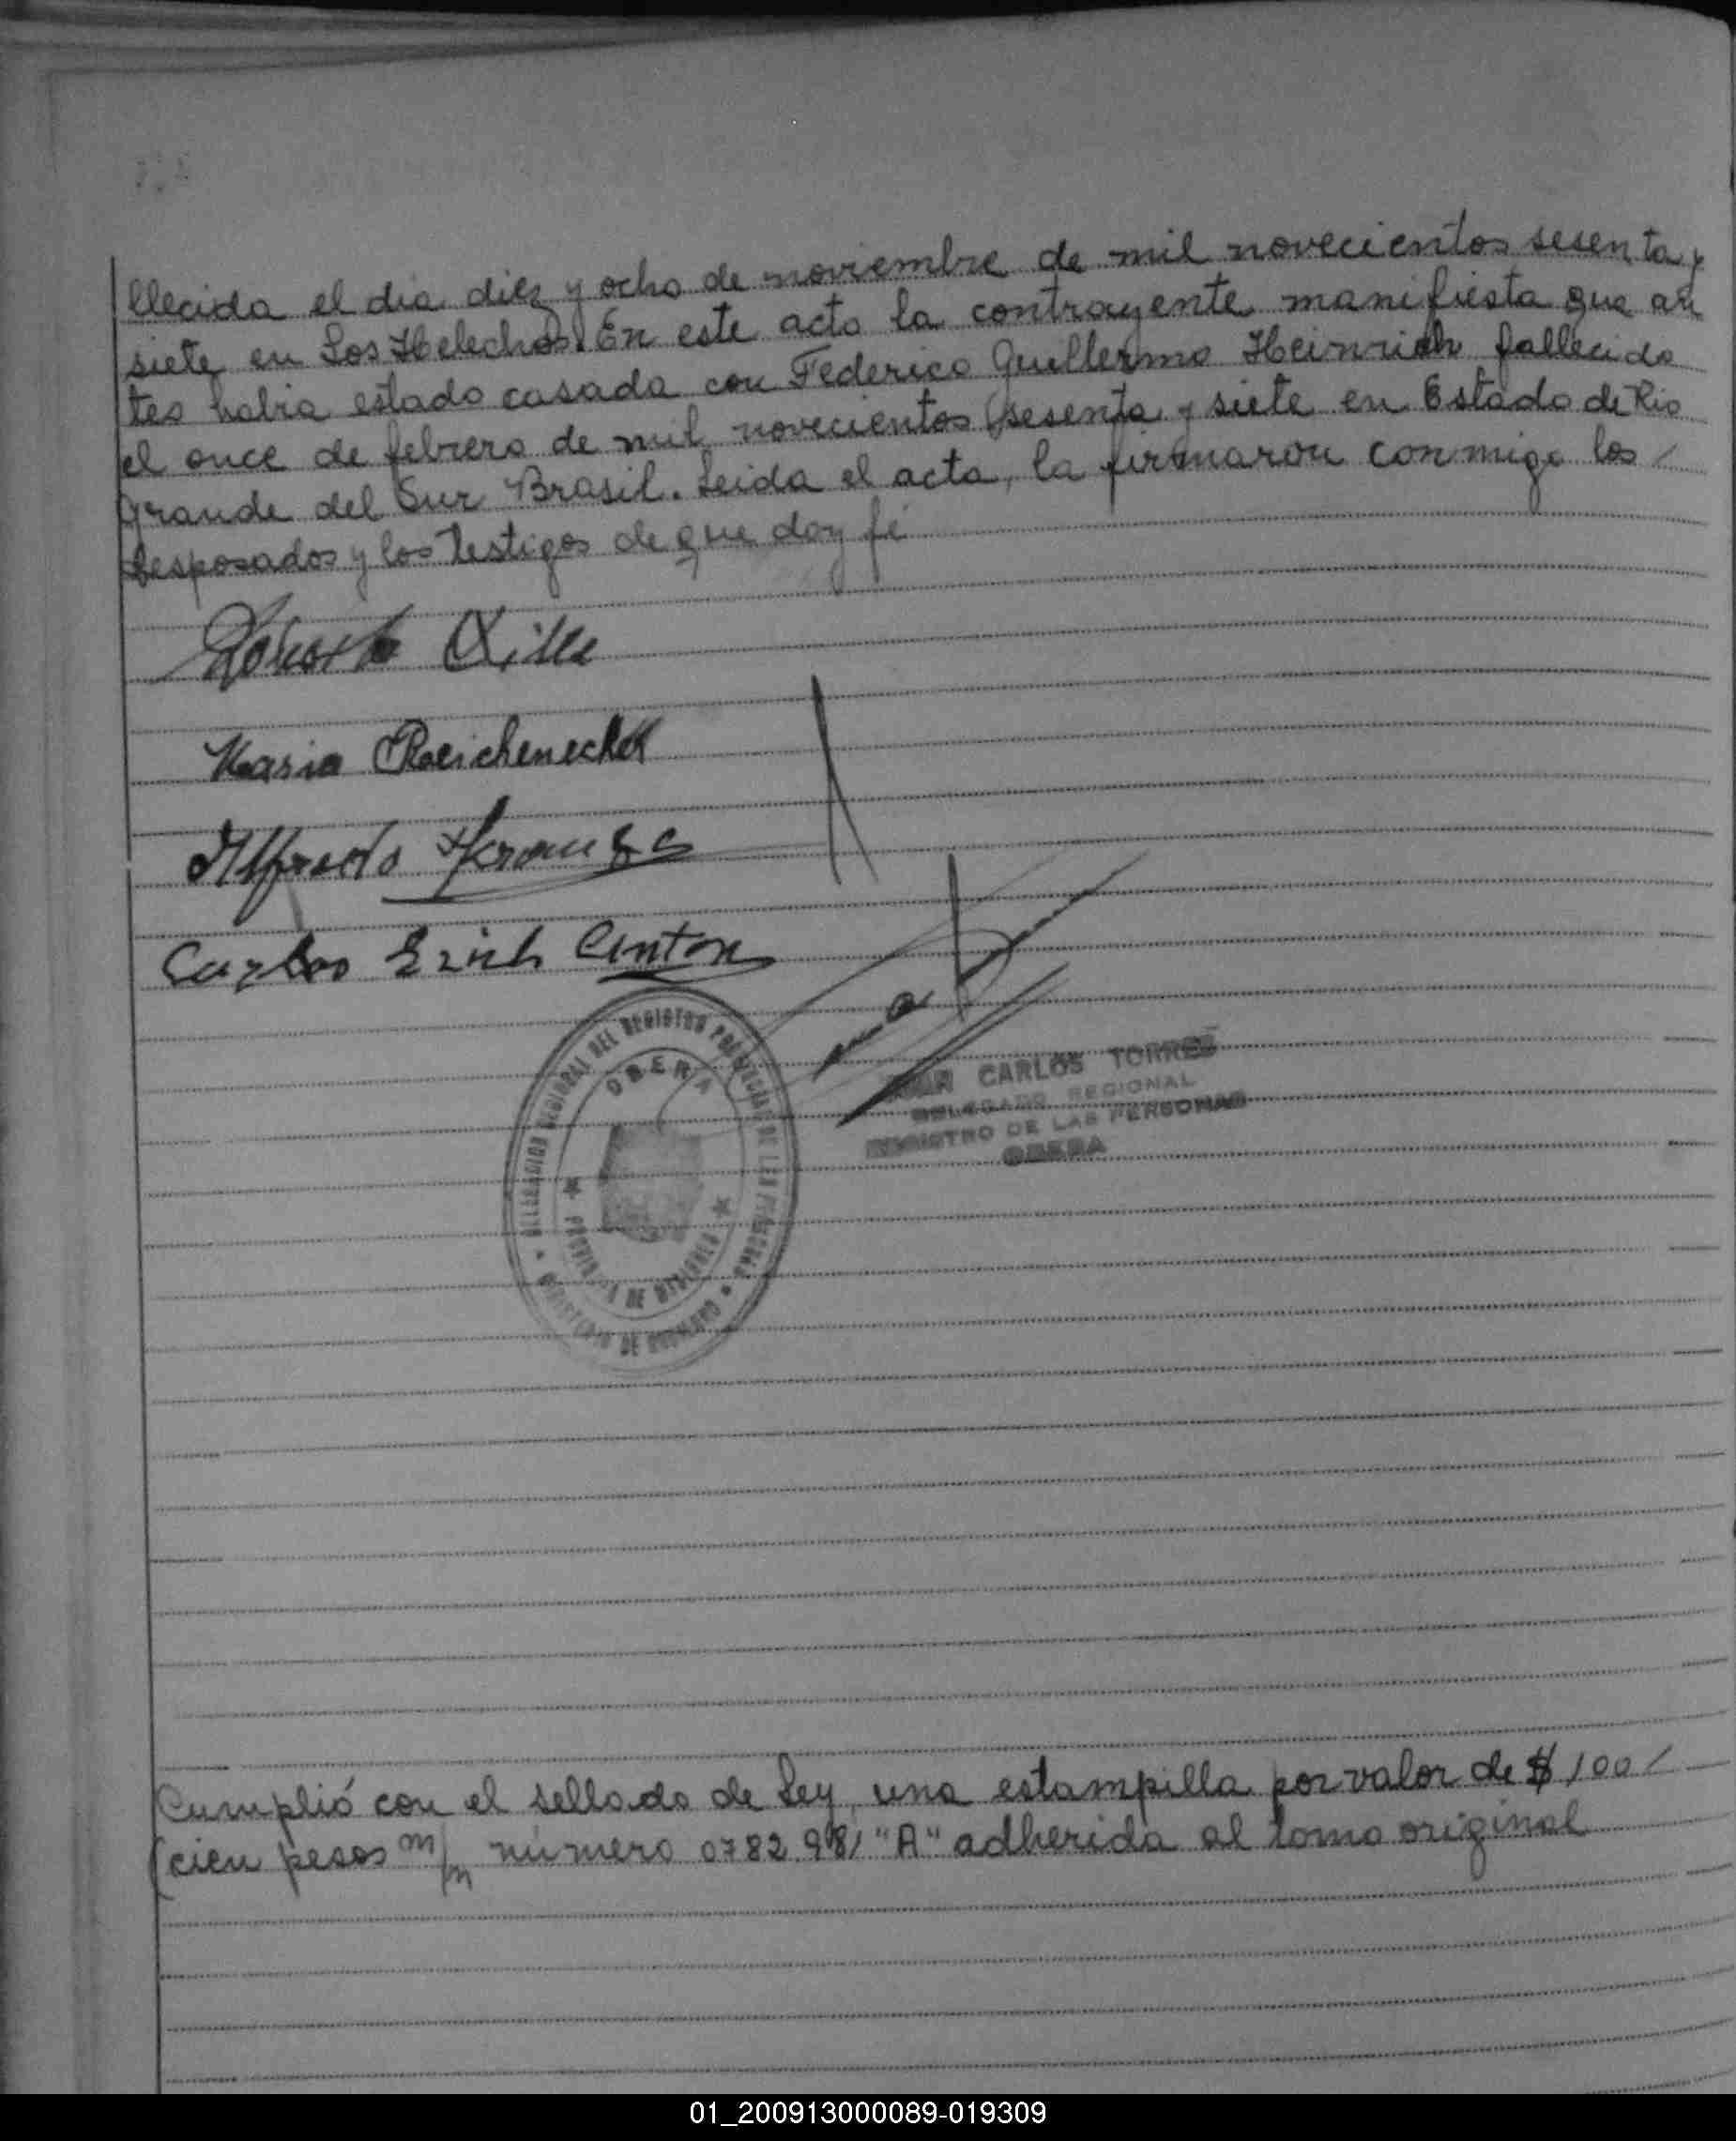 llecida el dia diez y ocho de noviembre de mil novecientos sesenta y
siete en Los Helechos. En este acto la contrayente manifiesta que an
tes habia estado casada con Federico Guillermo Heinrich fallecido
el once de febrero de mil novecientos sesenta y siete en Estado de Rio
Grande del Sur Brasil. Leida el acta, la firmaron conmigo los
desposados y los testigos de que doy fé
Maria Reichenecker
Alfredo
Carlos Erich Anton
DELEGACION REGIONAL DEL REGISTRO PROVINCIAL DE LAS PERSONAS
OBERA
PROVINCIA DE MISIONES
MINISTERIO DE GOBIERNO
CARLOS TORRES
DELEGADO REGIONAL
REGISTRO DE LAS PERSONAS
OBERA
Cumplió con el sellado de Ley, una estampilla por valor de $ 100
(cien pesos m/n número 0782981 "A" adherida al tomo original
01_200913000089-019309